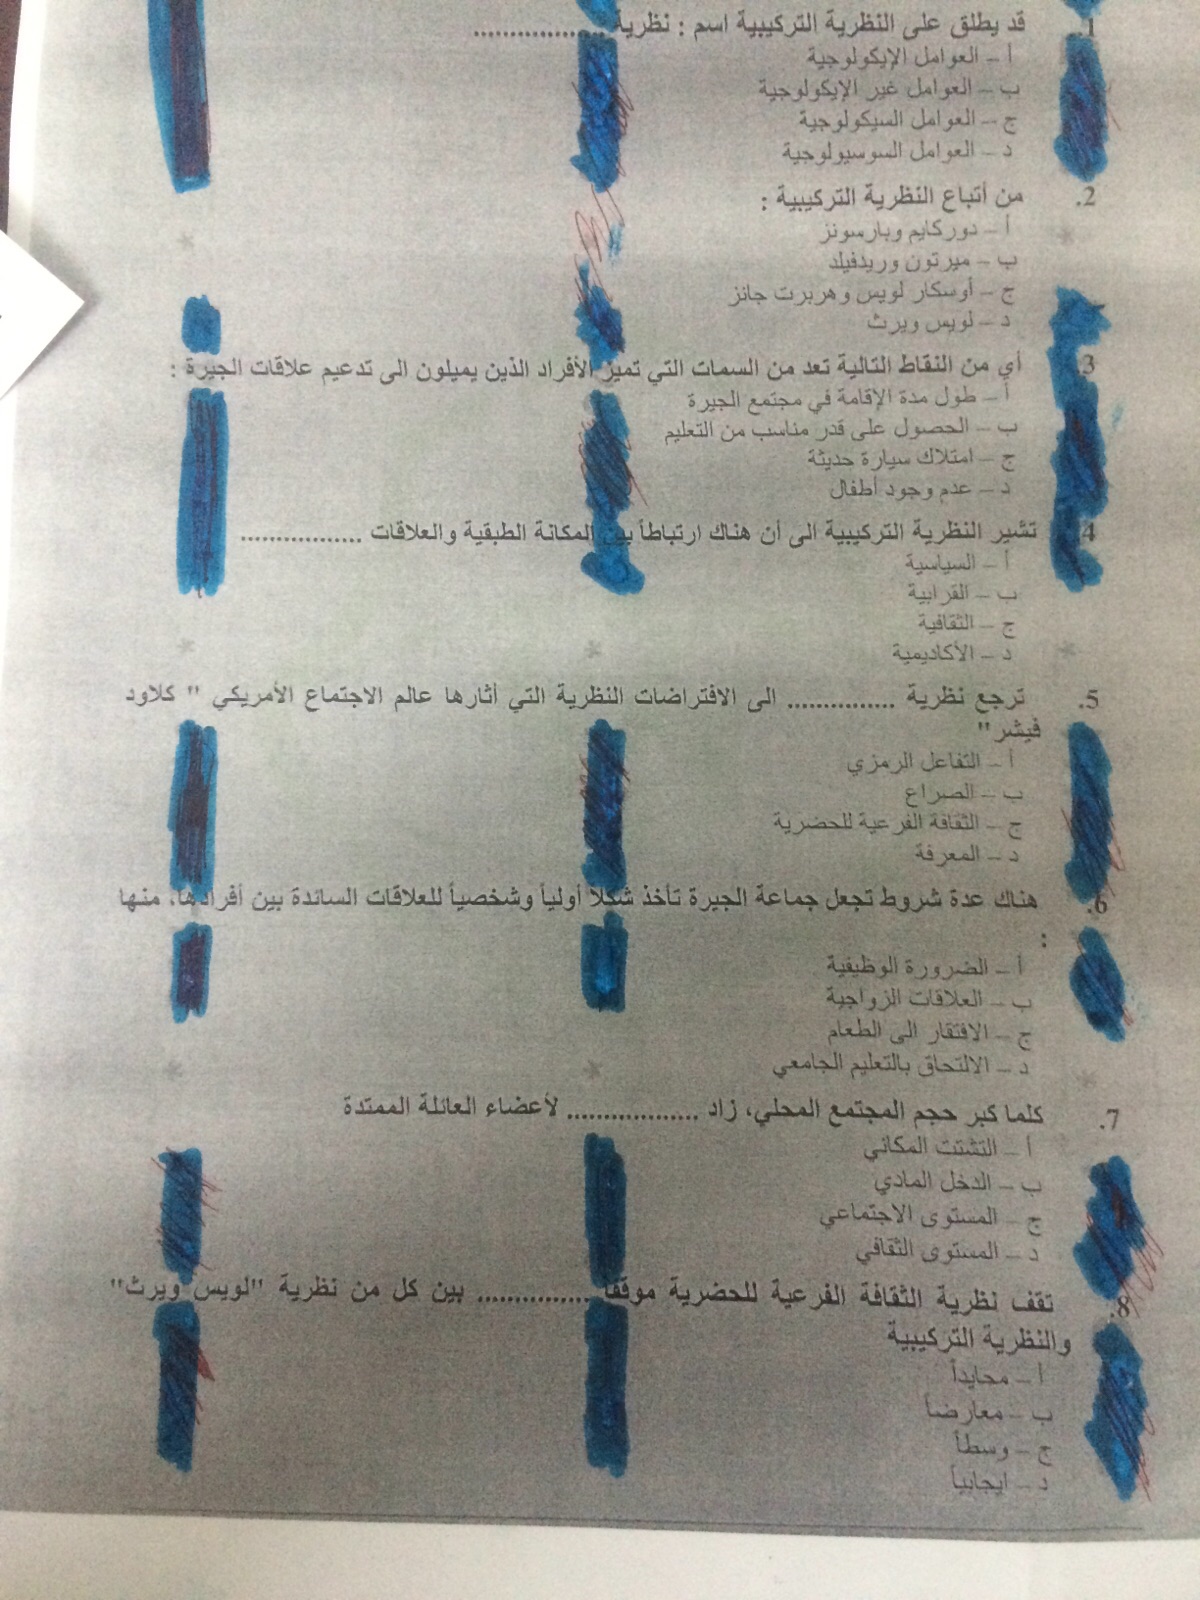 1. قد يطلق على النظرية التركيبية اسم : نظرية ..................
أ – العوامل الإيكولوجية
ب – العوامل غير الإيكولوجية
ج – العوامل السيكولوجية
د – العوامل السوسيولوجية
2. من أتباع النظرية التركيبية :
أ – دوركايم وبارسونز
ب – ميرتون وريدفيلد
ج – أوسكار لويس وهربرت جانز
د – لويس ويرث
3. أي من النقاط التالية تعد من السمات التي تميز الأفراد الذين يميلون الى تدعيم علاقات الجيرة :
أ – طول مدة الإقامة في مجتمع الجيرة
ب – الحصول على قدر مناسب من التعليم
ج – امتلاك سيارة حديثة
د – عدم وجود أطفال
4. تشير النظرية التركيبية الى أن هناك ارتباطاً بين المكانة الطبقية والعلاقات ................
أ – السياسية
ب – القرابية
ج – الثقافية
د – الأكاديمية
5. ترجع نظرية .............. الى الافتراضات النظرية التي أثارها عالم الاجتماع الأمريكي " كلاود
فيشر"
أ – التفاعل الرمزي
ب – الصراع
ج – الثقافة الفرعية للحضرية
د – المعرفة
6. هناك عدة شروط تجعل جماعة الجيرة تأخذ شكلاً أولياً وشخصياً للعلاقات السائدة بين أفرادها، منها
:
أ – الضرورة الوظيفية
ب – العلاقات الزواجية
ج – الافتقار الى الطعام
د – الالتحاق بالتعليم الجامعي
7. كلما كبر حجم المجتمع المحلي، زاد ................. لأعضاء العائلة الممتدة
أ – التشتت المكاني
ب – الدخل المادي
ج – المستوى الاجتماعي
د – المستوى الثقافي
8. تقف نظرية الثقافة الفرعية للحضرية موقفاً .............. بين كل من نظرية "لويس ويرث"
والنظرية التركيبية
أ – محايداً
ب – معارضاً
ج – وسطاً
د – ايجابياً